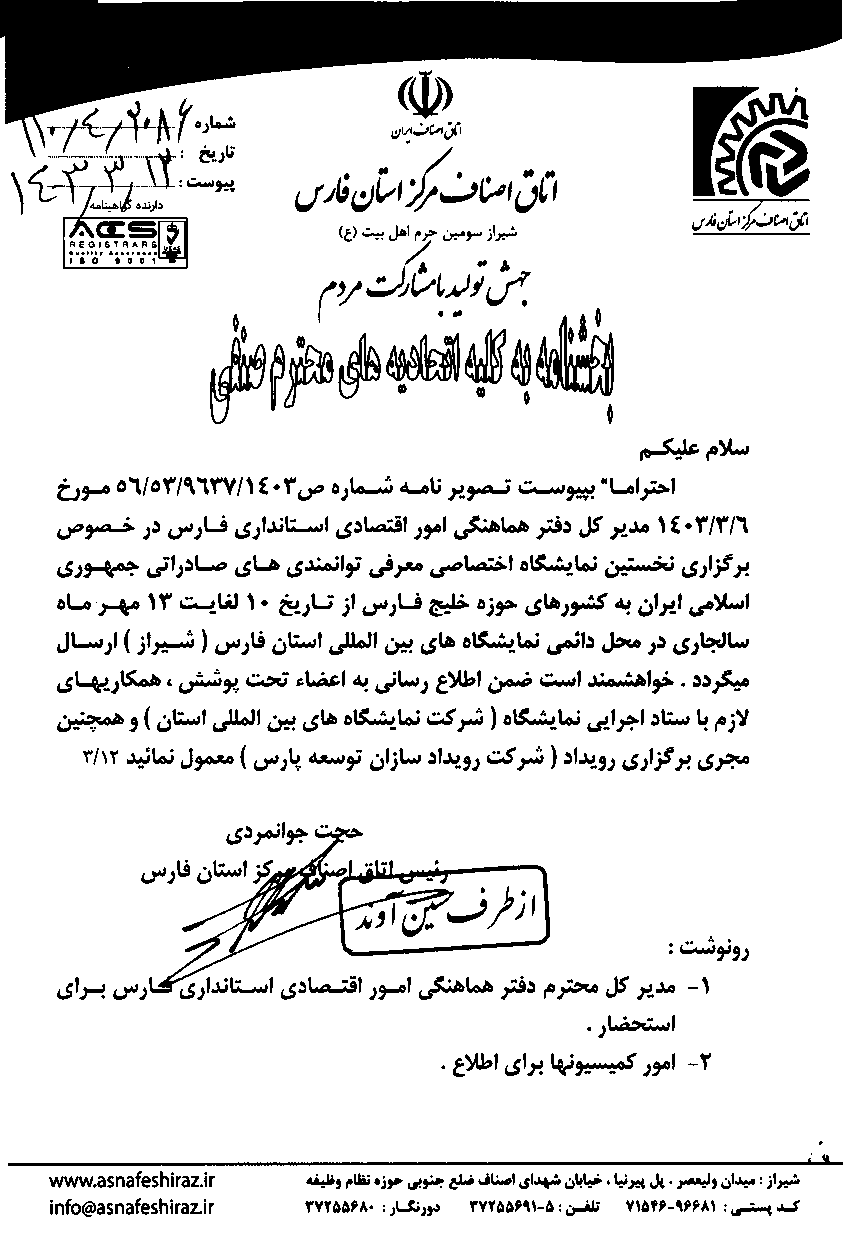 اتاق اصناف ایران
اتاق اصناف مرکز استان فارس
شیراز سومین حرم اهل بیت (ع)
جهش تولید با مشارکت مردم
اتاق اصناف مرکز استان فارس
شماره
تاریخ :
پیوست :
دارنده گواهینامه
ACS
REGISTRARS
Quality Assurance
ISO 9001
بخشنامه به کلیه اتحادیه های محترم صنفی
سلام علیکم
احتراما" بپیوست تصویر نامه شماره ص۵۶/۵۳/۹۶۳۷/۱۴۰۳ مورخ
۱۴۰۳/۳/۶ مدیر کل دفتر هماهنگی امور اقتصادی استانداری فارس در خصوص
برگزاری نخستین نمایشگاه اختصاصی معرفی توانمندی های صادراتی جمهوری
اسلامی ایران به کشورهای حوزه خلیج فارس از تاریخ ۱۰ لغایت ۱۳ مهر ماه
سالجاری در محل دائمی نمایشگاه های بین المللی استان فارس ( شیراز ) ارسال
میگردد . خواهشمند است ضمن اطلاع رسانی به اعضاء تحت پوشش ، همکاریهای
لازم با ستاد اجرایی نمایشگاه ( شرکت نمایشگاه های بین المللی استان ) و همچنین
مجری برگزاری رویداد ( شرکت رویداد سازان توسعه پارس ) معمول نمائید ۳/۱۲
حجت جوانمردی
رئیس اتاق اصناف مرکز استان فارس
از طرف حسین آوند
رونوشت :
۱- مدیر کل محترم دفتر هماهنگی امور اقتصادی استانداری فارس برای
استحضار .
۲- امور کمیسیونها برای اطلاع .
شیراز : میدان ولیعصر ، پل پیرنیا ، خیابان شهدای اصناف ضلع جنوبی حوزه نظام وظیفه
کد پستی : ۷۱۵۴۶-۹۶۶۸۱ تلفن : ۵-۳۷۲۵۵۶۹۱ دورنگار : ۳۷۲۵۵۶۸۰
www.asnafeshiraz.ir
info@asnafeshiraz.ir